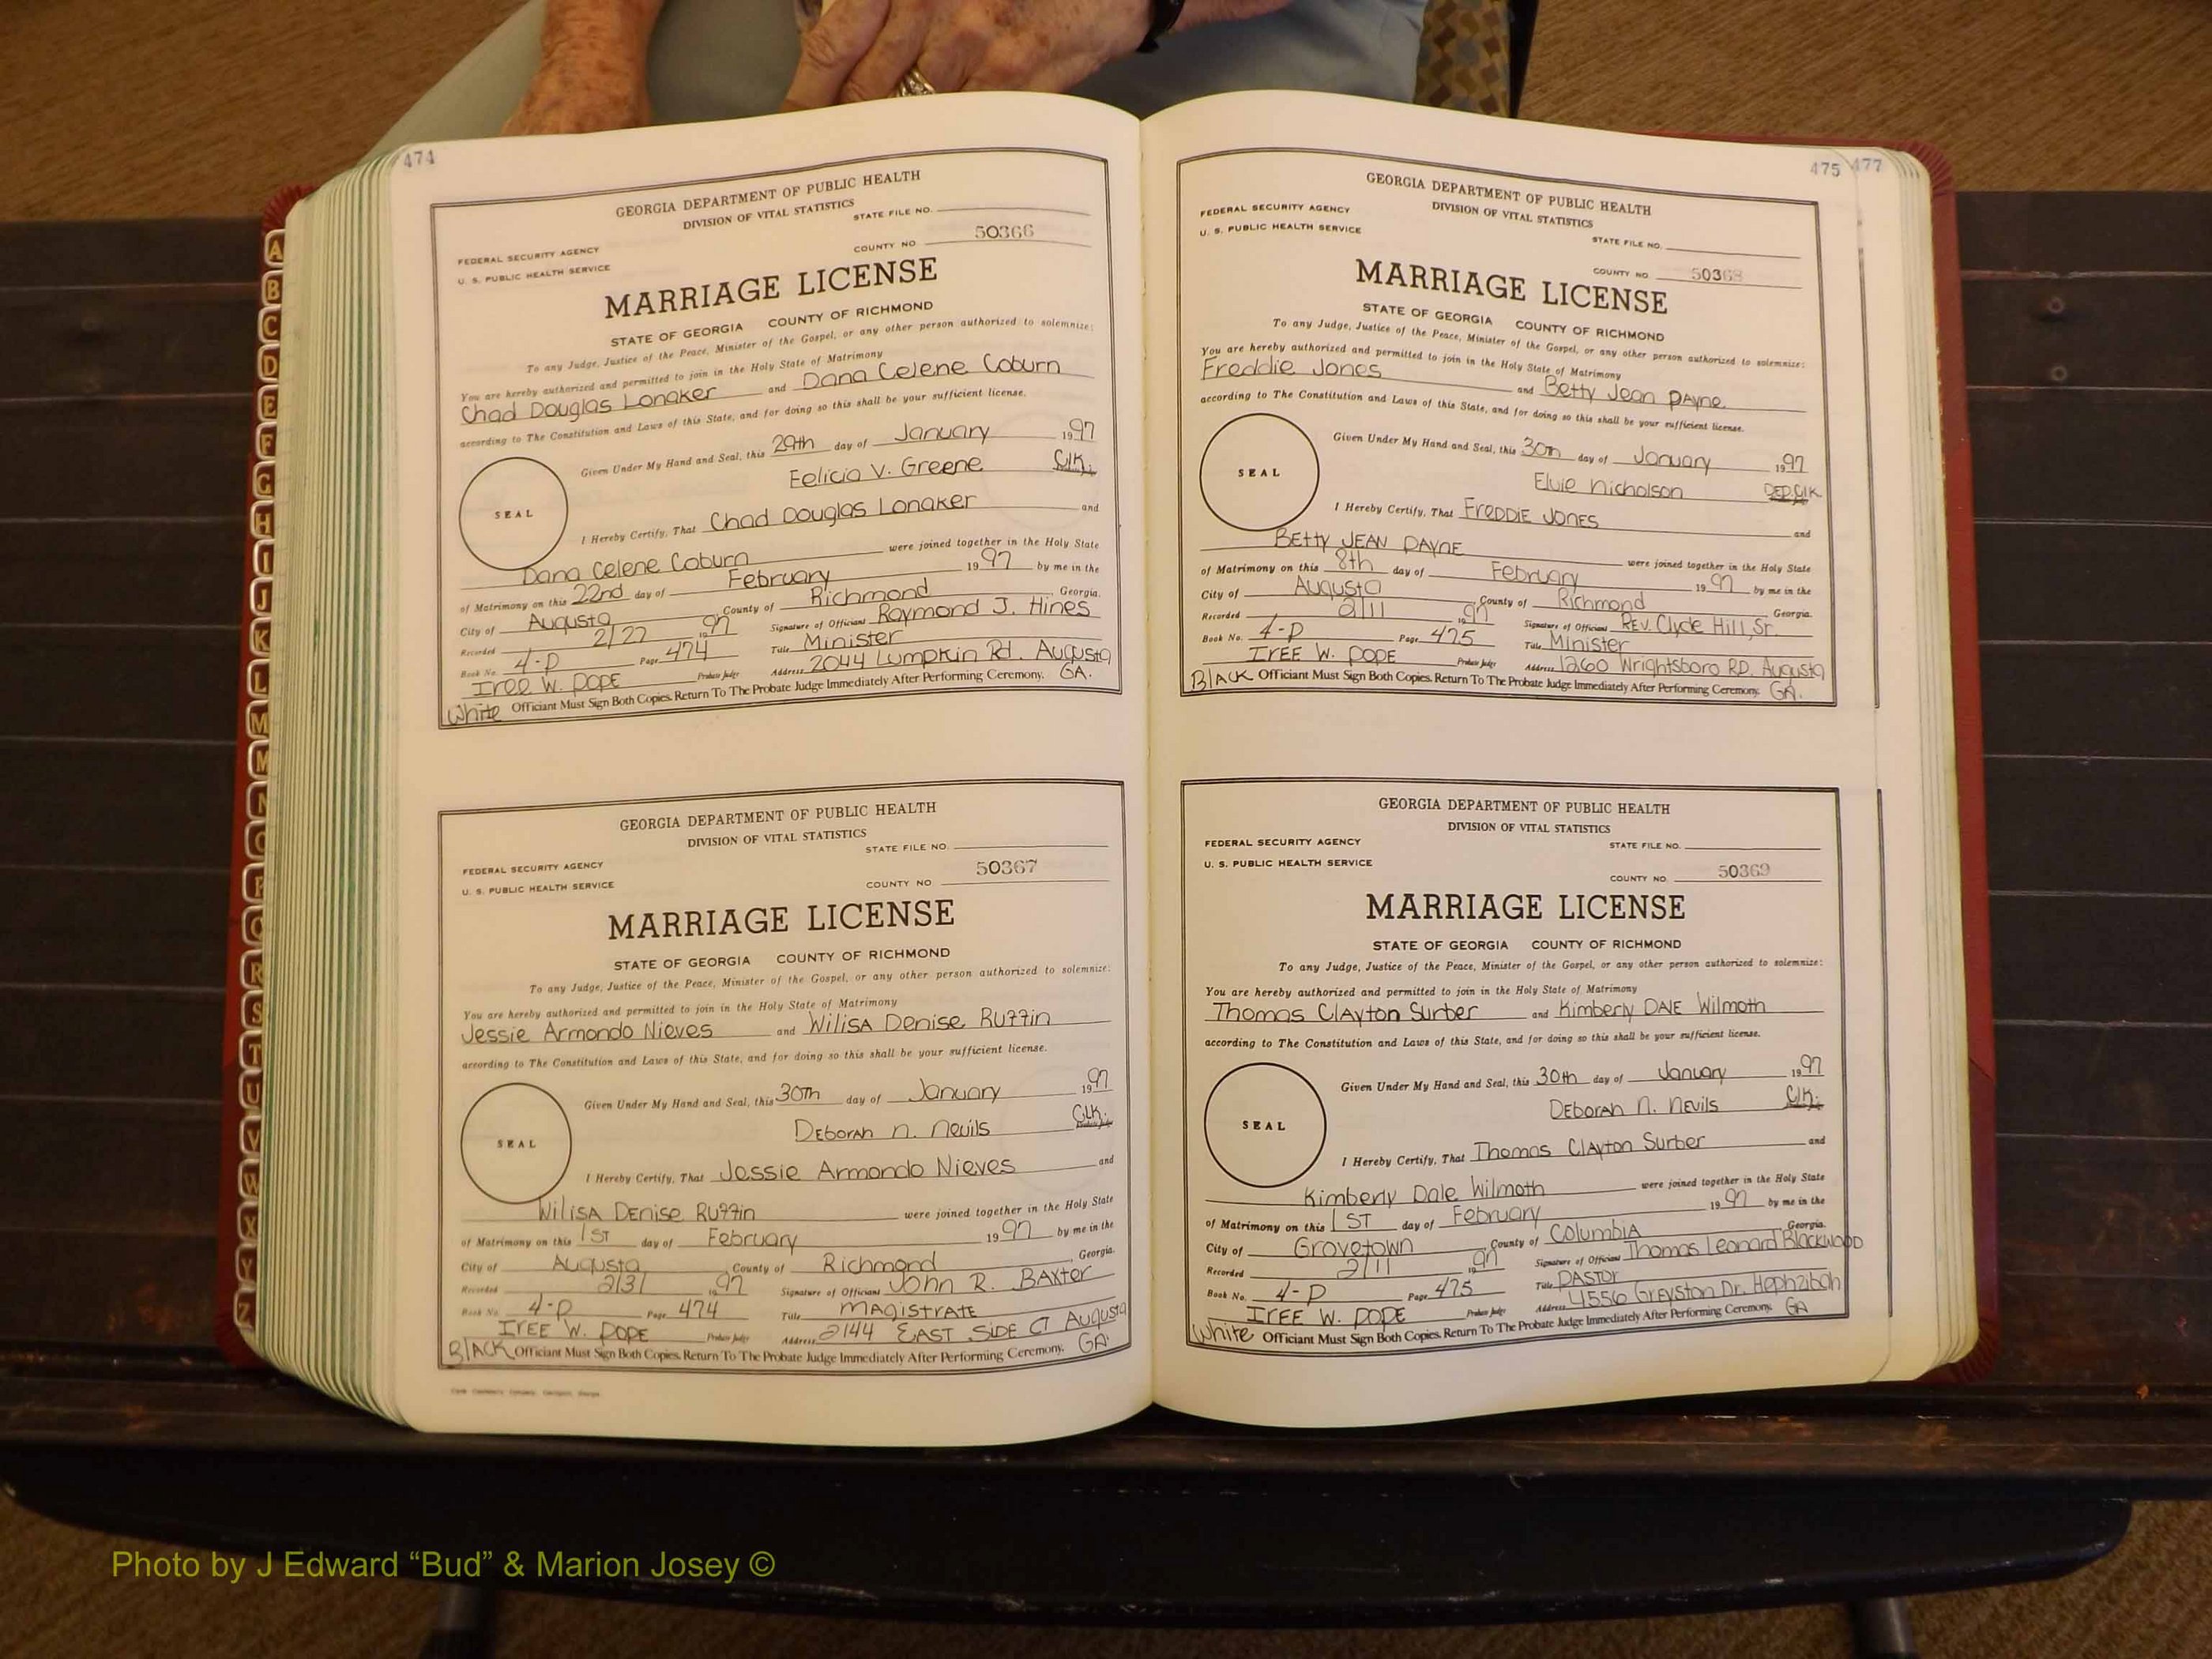 474
GEORGIA DEPARTMENT OF PUBLIC HEALTH
DIVISION OF VITAL STATISTICS
STATE FILE NO.
FEDERAL SECURITY AGENCY
COUNTY NO 50366
U. S. PUBLIC HEALTH SERVICE
MARRIAGE LICENSE
STATE OF GEORGIA COUNTY OF RICHMOND
To any Judge, Justice of the Peace, Minister of the Gospel, or any other person authorized to solemnize:
You are hereby authorized and permitted to join in the Holy State of Matrimony
Chad Douglas Lonaker and Dana Celene Coburn
according to The Constitution and Laws of this State, and for doing so this shall be your sufficient license.
Given Under My Hand and Seal, this 29th day of January 1997
Felicia V. Greene Clk.
SEAL
I Hereby Certify, That Chad Douglas Lonaker and
Dana Celene Coburn were joined together in the Holy State
of Matrimony on this 22nd day of February 1997 by me in the
City of Augusta County of Richmond Georgia.
Recorded 2/27 1997 Signature of Officiant Raymond J. Hines
Book No. 4-D Page 474 Title Minister
Iree W. Pope Probate Judge Address 2044 Lumpkin Rd. Augusta
White Officiant Must Sign Both Copies. Return To The Probate Judge Immediately After Performing Ceremony. GA.
GEORGIA DEPARTMENT OF PUBLIC HEALTH
DIVISION OF VITAL STATISTICS
STATE FILE NO.
FEDERAL SECURITY AGENCY
COUNTY NO 50367
U. S. PUBLIC HEALTH SERVICE
MARRIAGE LICENSE
STATE OF GEORGIA COUNTY OF RICHMOND
To any Judge, Justice of the Peace, Minister of the Gospel, or any other person authorized to solemnize:
You are hereby authorized and permitted to join in the Holy State of Matrimony
Jessie Armondo Nieves and Wilisa Denise Ruffin
according to The Constitution and Laws of this State, and for doing so this shall be your sufficient license.
Given Under My Hand and Seal, this 30th day of January 1997
Deborah N. Nevils Clk.
SEAL
I Hereby Certify, That Jessie Armondo Nieves and
Wilisa Denise Ruffin were joined together in the Holy State
of Matrimony on this 1st day of February 1997 by me in the
City of Augusta County of Richmond Georgia.
Recorded 2/3/ 1997 Signature of Officiant John R. Baxter
Book No. 4-D Page 474 Title Magistrate
Iree W. Pope Probate Judge Address 2144 East Side Ct Augusta
Black Officiant Must Sign Both Copies. Return To The Probate Judge Immediately After Performing Ceremony. GA.
475 477
GEORGIA DEPARTMENT OF PUBLIC HEALTH
FEDERAL SECURITY AGENCY
DIVISION OF VITAL STATISTICS
U. S. PUBLIC HEALTH SERVICE
STATE FILE NO.
COUNTY NO 50368
MARRIAGE LICENSE
STATE OF GEORGIA COUNTY OF RICHMOND
To any Judge, Justice of the Peace, Minister of the Gospel, or any other person authorized to solemnize:
You are hereby authorized and permitted to join in the Holy State of Matrimony
Freddie Jones and Betty Jean Payne
according to The Constitution and Laws of this State, and for doing so this shall be your sufficient license.
Given Under My Hand and Seal, this 30th day of January 1997
Elvie Nicholson Dep. Clk
SEAL
I Hereby Certify, That Freddie Jones and
Betty Jean Payne were joined together in the Holy State
of Matrimony on this 8th day of February 1997 by me in the
City of Augusta County of Richmond Georgia.
Recorded 2/11 1997 Signature of Officiant Rev. Clyde Hill, Sr.
Book No. 4-D Page 475 Title Minister
Iree W. Pope Probate Judge Address 1260 Wrightsboro RD. Augusta
Black Officiant Must Sign Both Copies. Return To The Probate Judge Immediately After Performing Ceremony. GA.
GEORGIA DEPARTMENT OF PUBLIC HEALTH
DIVISION OF VITAL STATISTICS
FEDERAL SECURITY AGENCY
STATE FILE NO.
U. S. PUBLIC HEALTH SERVICE
COUNTY NO. 50369
MARRIAGE LICENSE
STATE OF GEORGIA COUNTY OF RICHMOND
To any Judge, Justice of the Peace, Minister of the Gospel, or any other person authorized to solemnize:
You are hereby authorized and permitted to join in the Holy State of Matrimony
Thomas Clayton Surber and Kimberly Dale Wilmoth
according to The Constitution and Laws of this State, and for doing so this shall be your sufficient license.
Given Under My Hand and Seal, this 30th day of January 1997
Deborah N. Nevils Clk.
SEAL
I Hereby Certify, That Thomas Clayton Surber and
Kimberly Dale Wilmoth were joined together in the Holy State
of Matrimony on this 1st day of February 1997 by me in the
City of Grovetown County of Columbia Georgia.
Recorded 2/11 1997 Signature of Officiant Thomas Leonard Blackwood
Book No. 4-D Page 475 Title Pastor
Iree W. Pope Probate Judge Address 4556 Greyston Dr. Hephzibah
White Officiant Must Sign Both Copies. Return To The Probate Judge Immediately After Performing Ceremony. GA
A
B
C
D
E
F
G
H
I
J
K
L
M
M
N
O
P
Q
R
S
T
U
V
W
X
Y
Z
Photo by J Edward “Bud” & Marion Josey ©